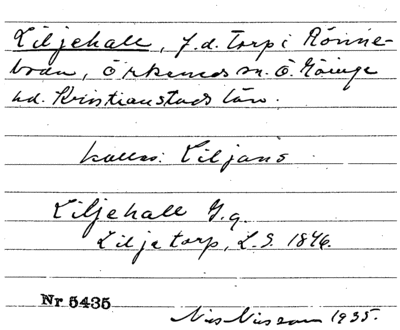 Liljehall, f.d. torp i Rönne-
boda, Örkeneds sn. Ö. Göinge
hd. Kristianstads län.
kallas: Liljans
Liljehall
Liljetorp, L.S. 1846.
Nr 5435
Nils Nilsson 1935.